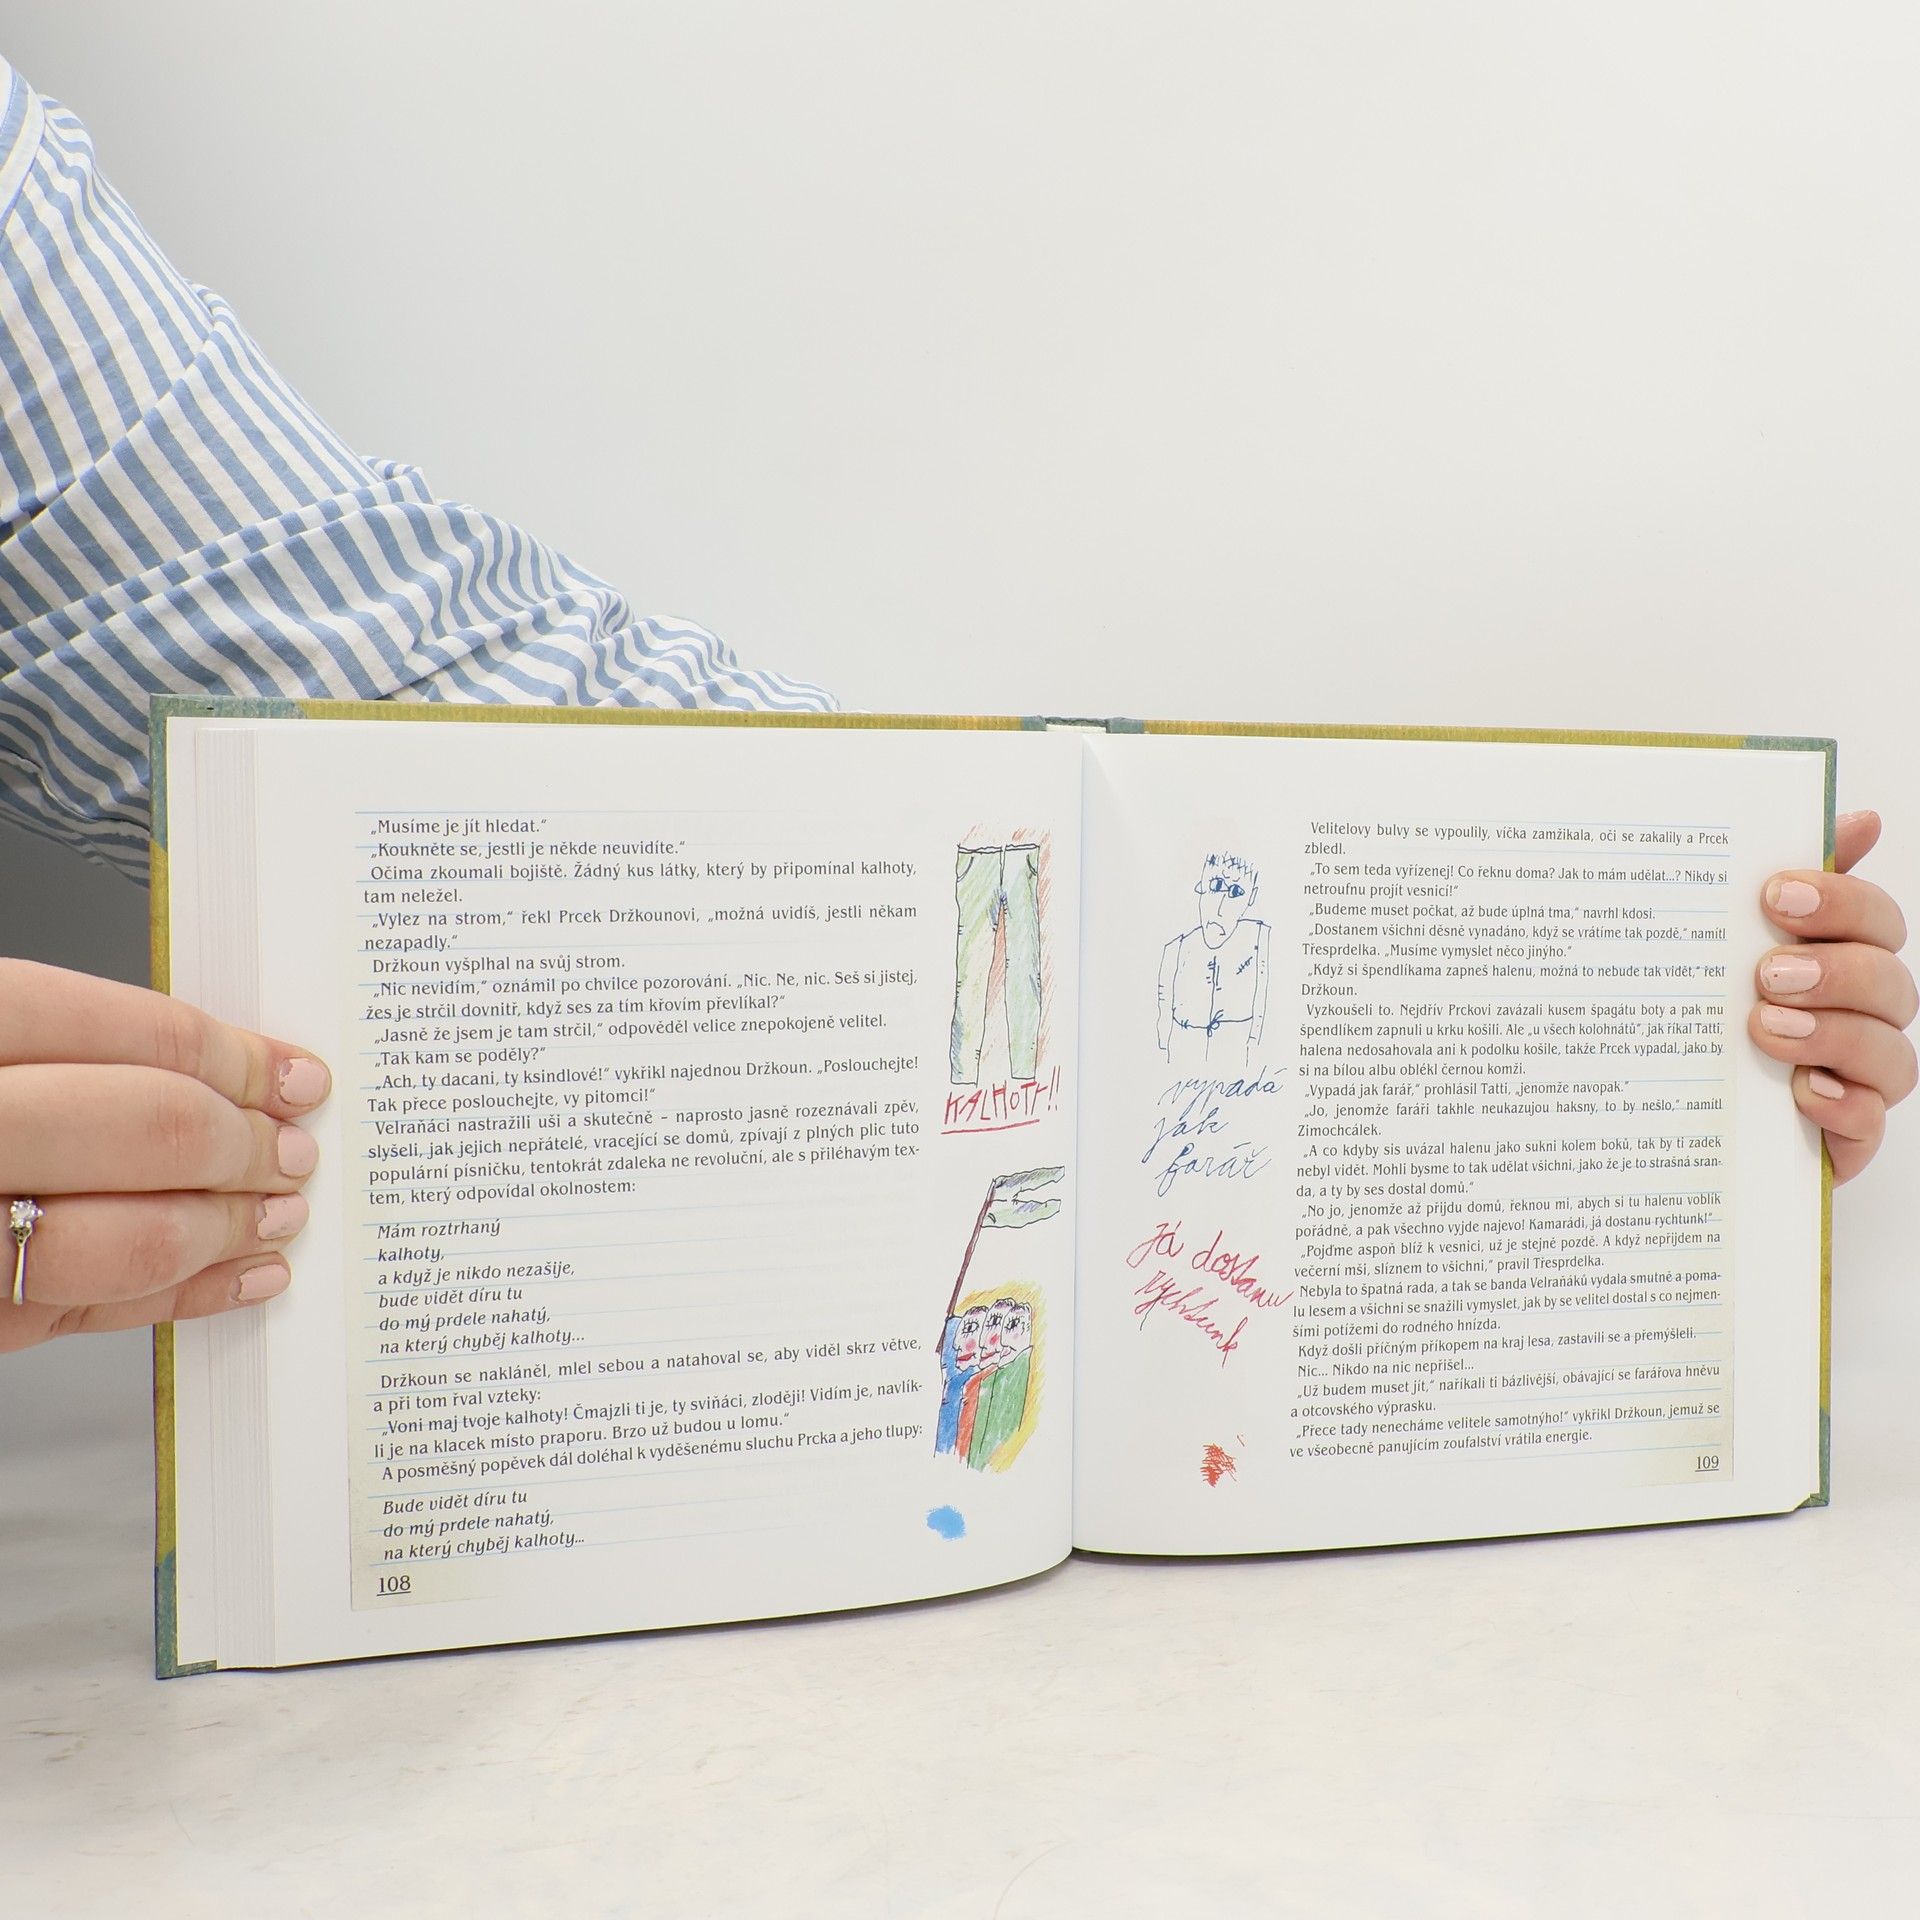 „Musíme je jít hledat.“
„Koukněte se, jestli je někde neuvidíte.“
Očima zkoumali bojiště. Žádný kus látky, který by připomínal kalhoty,
tam neležel.
„Vylez na strom,“ řekl Prcek Držkounovi, „možná uvidíš, jestli někam
nezapadly.“
Držkoun vyšplhal na svůj strom.
„Nic nevidím,“ oznámil po chvilce pozorování. „Nic. Ne, nic. Seš si jistej,
žes je strčil dovnitř, když ses za tím křovím převlíkal?“
„Jasně že jsem je tam strčil,“ odpověděl velice znepokojeně velitel.
„Tak kam se poděly?“
„Ach, ty dacani, ty ksindlové!“ vykřikl najednou Držkoun. „Poslouchejte!
Tak přece poslouchejte, vy pitomci!“
Velraňáci nastražili uši a skutečně – naprosto jasně rozeznávali zpěv,
slyšeli, jak jejich nepřátelé, vracející se domů, zpívají z plných plic tuto
populární písničku, tentokrát zdaleka ne revoluční, ale s přiléhavým tex-
tem, který odpovídal okolnostem:
Mám roztrhaný
kalhoty,
a když je nikdo nezašije,
bude vidět díru tu
do mý prdele nahatý,
na který chyběj kalhoty...
Držkoun se nakláněl, mlel sebou a natahoval se, aby viděl skrz větve,
a při tom řval vzteky:
„Voni maj tvoje kalhoty! Čmajzli ti je, ty sviňáci, zloději! Vidím je, navlík-
li je na klacek místo praporu. Brzo už budou u lomu.“
A posměšný popěvek dál doléhal k vyděšenému sluchu Prcka a jeho tlupy:
Bude vidět díru tu
do mý prdele nahatý,
na který chyběj kalhoty...
108
KALHOTY!!
vypadá
jak
farář
Já dostanu
rychtunk
Velitelovy bulvy se vypoulily, víčka zamžikala, oči se zakalily a Prcek
zbledl.
„To sem teda vyřízenej! Co řeknu doma? Jak to mám udělat...? Nikdy si
netroufnu projít vesnicí!“
„Budeme muset počkat, až bude úplná tma,“ navrhl kdosi.
„Dostanem všichni děsně vynadáno, když se vrátíme tak pozdě,“ namítl
Třesprdelka. „Musíme vymyslet něco jinýho.“
„Když si špendlíkama zapneš halenu, možná to nebude tak vidět,“ řekl
Držkoun.
Vyzkoušeli to. Nejdřív Prckovi zavázali kusem špagátu boty a pak mu
špendlíkem zapnuli u krku košili. Ale „u všech kolohnátů“, jak říkal Tatti,
halena nedosahovala ani k podolku košile, takže Prcek vypadal, jako by
si na bílou albu oblékl černou komži.
„Vypadá jak farář,“ prohlásil Tatti, „jenomže navopak.“
„Jo, jenomže faráři takhle neukazujou haksny, to by nešlo,“ namítl
Zimochcálek.
„A co kdyby sis uvázal halenu jako sukni kolem boků, tak by ti zadek
nebyl vidět. Mohli bysme to tak udělat všichni, jako že je to strašná sran-
da, a ty by ses dostal domů.“
„No jo, jenomže až přijdu domů, řeknou mi, abych si tu halenu voblík
pořádně, a pak všechno vyjde najevo! Kamarádi, já dostanu rychtunk!“
„Pojďme aspoň blíž k vesnici, už je stejně pozdě. A když nepřijdem na
večerní mši, slíznem to všichni,“ pravil Třesprdelka.
Nebyla to špatná rada, a tak se banda Velraňáků vydala smutně a poma-
lu lesem a všichni se snažili vymyslet, jak by se velitel dostal s co nejmen-
šími potížemi do rodného hnízda.
Když došli příčným příkopem na kraj lesa, zastavili se a přemýšleli.
Nic... Nikdo na nic nepřišel...
„Už budem muset jít,“ naříkali ti bázlivější, obávající se farářova hněvu
a otcovského výprasku.
„Přece tady nenecháme velitele samotnýho!“ vykřikl Držkoun, jemuž se
ve všeobecně panujícím zoufalství vrátila energie.
109